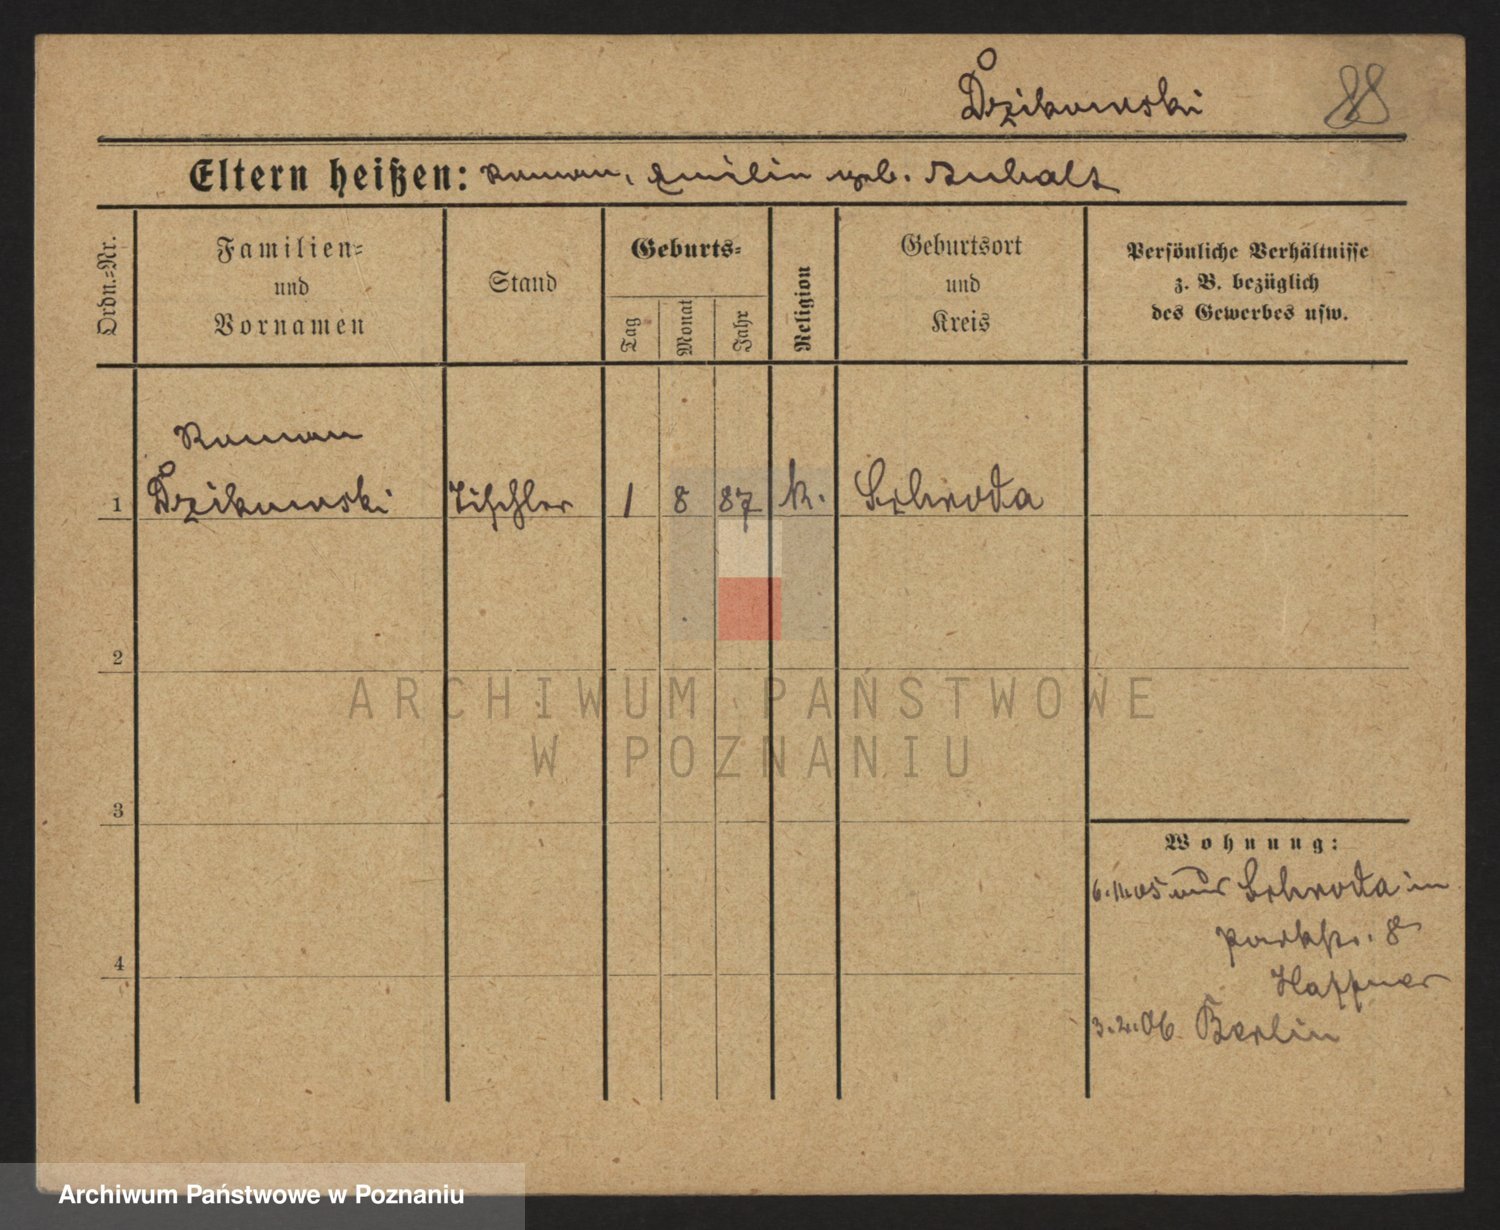 Dzikowski 88
Eltern heißen: Roman, Emilin geb. Anhalt
Ordn.-Nr.
Familien-
und
Vornamen
Stand
Geburts-
Tag
Monat
Jahr
Religion
Geburtsort
und
Kreis
Persönliche Verhältnisse
z. B. bezüglich
des Gewerbes usw.
Roman
1 Dzikowski Tischler 1 8 87 k. Schroda
2
ARCHIWUM PAŃSTWOWE
W POZNANIU
3
Wohnung:
6.11.05 aus Schroda in
Parkstr. 8
4
Haffner
3.2.06 Berlin
Archiwum Państwowe w Poznaniu